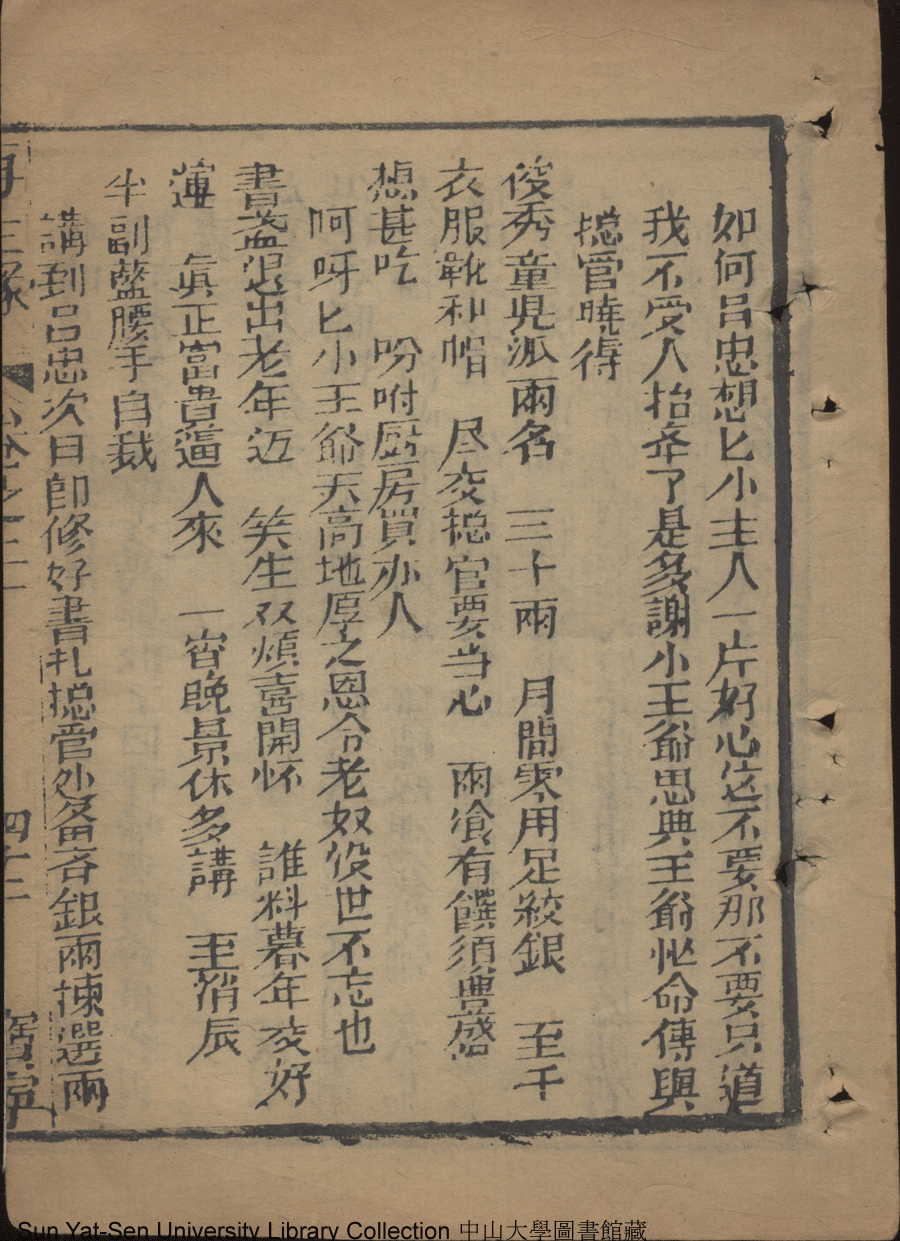 如何吕忠想匕小主人一片好心这不要那不要只道
我不受人抬举了是多謝小王爺思典王爺忙命傳與
揔官曉得
俊秀童児派兩名　三十兩　月間零用足紋銀　至于
衣服靴和帽　尽交揔官要当心　兩飡有饌須豊盛
想甚吃　吩咐厨房買办人
呵呀匕小王爺天高地厚之恩令老奴役世不忘也
書盖退出老年迈　笑生双煩喜開怀　誰料暮年交好
運　眞正富貴逼人來　一宿晩景休多講　至𣸪辰
半副藍腰手自裁
講到吕忠次日即修好書扎揔官处备齐銀兩揀選兩
再生縁　卷之十二　四十二